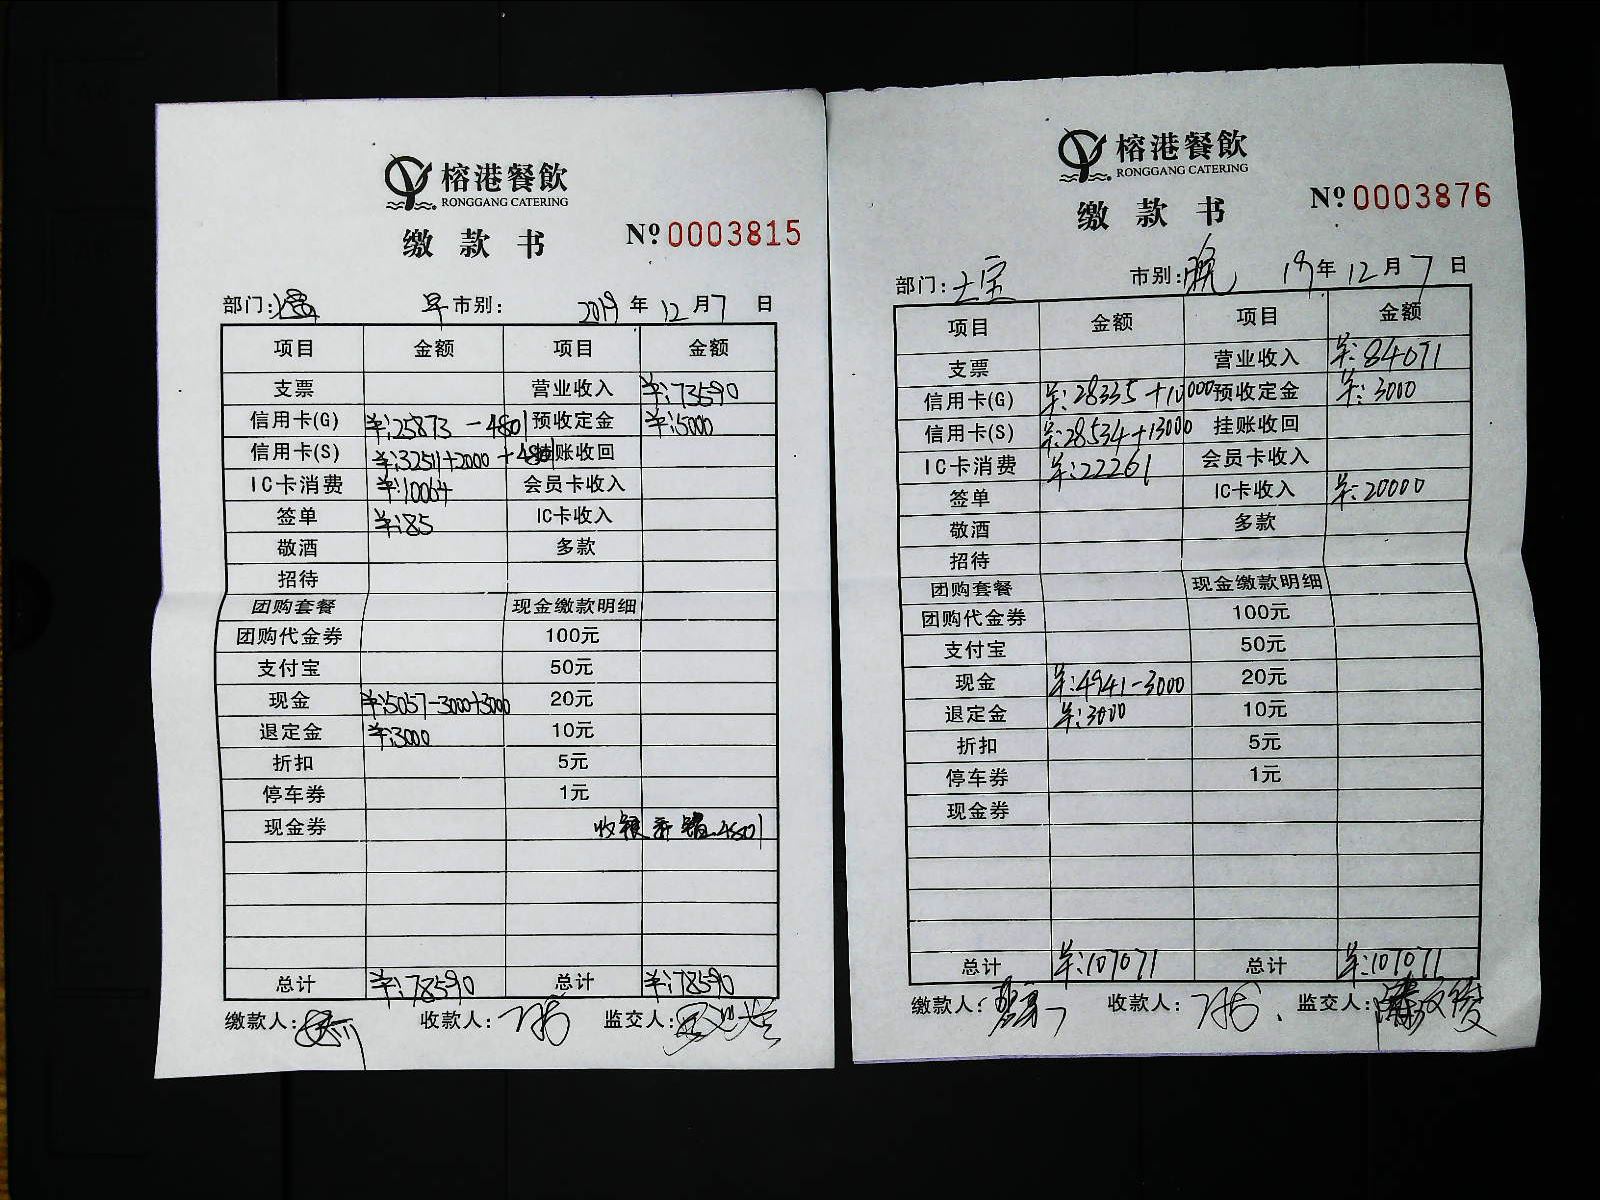 榕港餐飲
RONGGANG CATERING
缴款书
№ 0003815
部门: 早市别: 2019年12月7日
项目 金额 项目 金额
支票 营业收入 ¥:73590
信用卡(G) ¥:25873-4801 预收定金 ¥:5000
信用卡(S) ¥:32511+2000+4801 挂账收回
IC卡消费 ¥:10064 会员卡收入
签单 ¥:85 IC卡收入
敬酒 多款
招待
团购套餐 现金缴款明细
团购代金券 100元
支付宝 50元
现金 ¥:5057-3000+3000 20元
退定金 ¥:3000 10元
折扣 5元
停车券 1元
现金券 收银 4801
总计 ¥:78590 总计 ¥:78590
缴款人: 收款人: 监交人:
榕港餐飲
RONGGANG CATERING
缴款书
№ 0003876
部门: 市别:晚 19年12月7日
项目 金额 项目 金额
支票 营业收入 ¥:84071
信用卡(G) ¥:28335+10000 预收定金 ¥:3000
信用卡(S) ¥:28534+13000 挂账收回
IC卡消费 ¥:22261 会员卡收入
签单 IC卡收入 ¥:20000
敬酒 多款
招待
团购套餐 现金缴款明细
团购代金券 100元
支付宝 50元
现金 ¥:4941-3000 20元
退定金 ¥:3000 10元
折扣 5元
停车券 1元
现金券
总计 ¥:107071 总计 ¥:107071
缴款人: 收款人: 监交人: